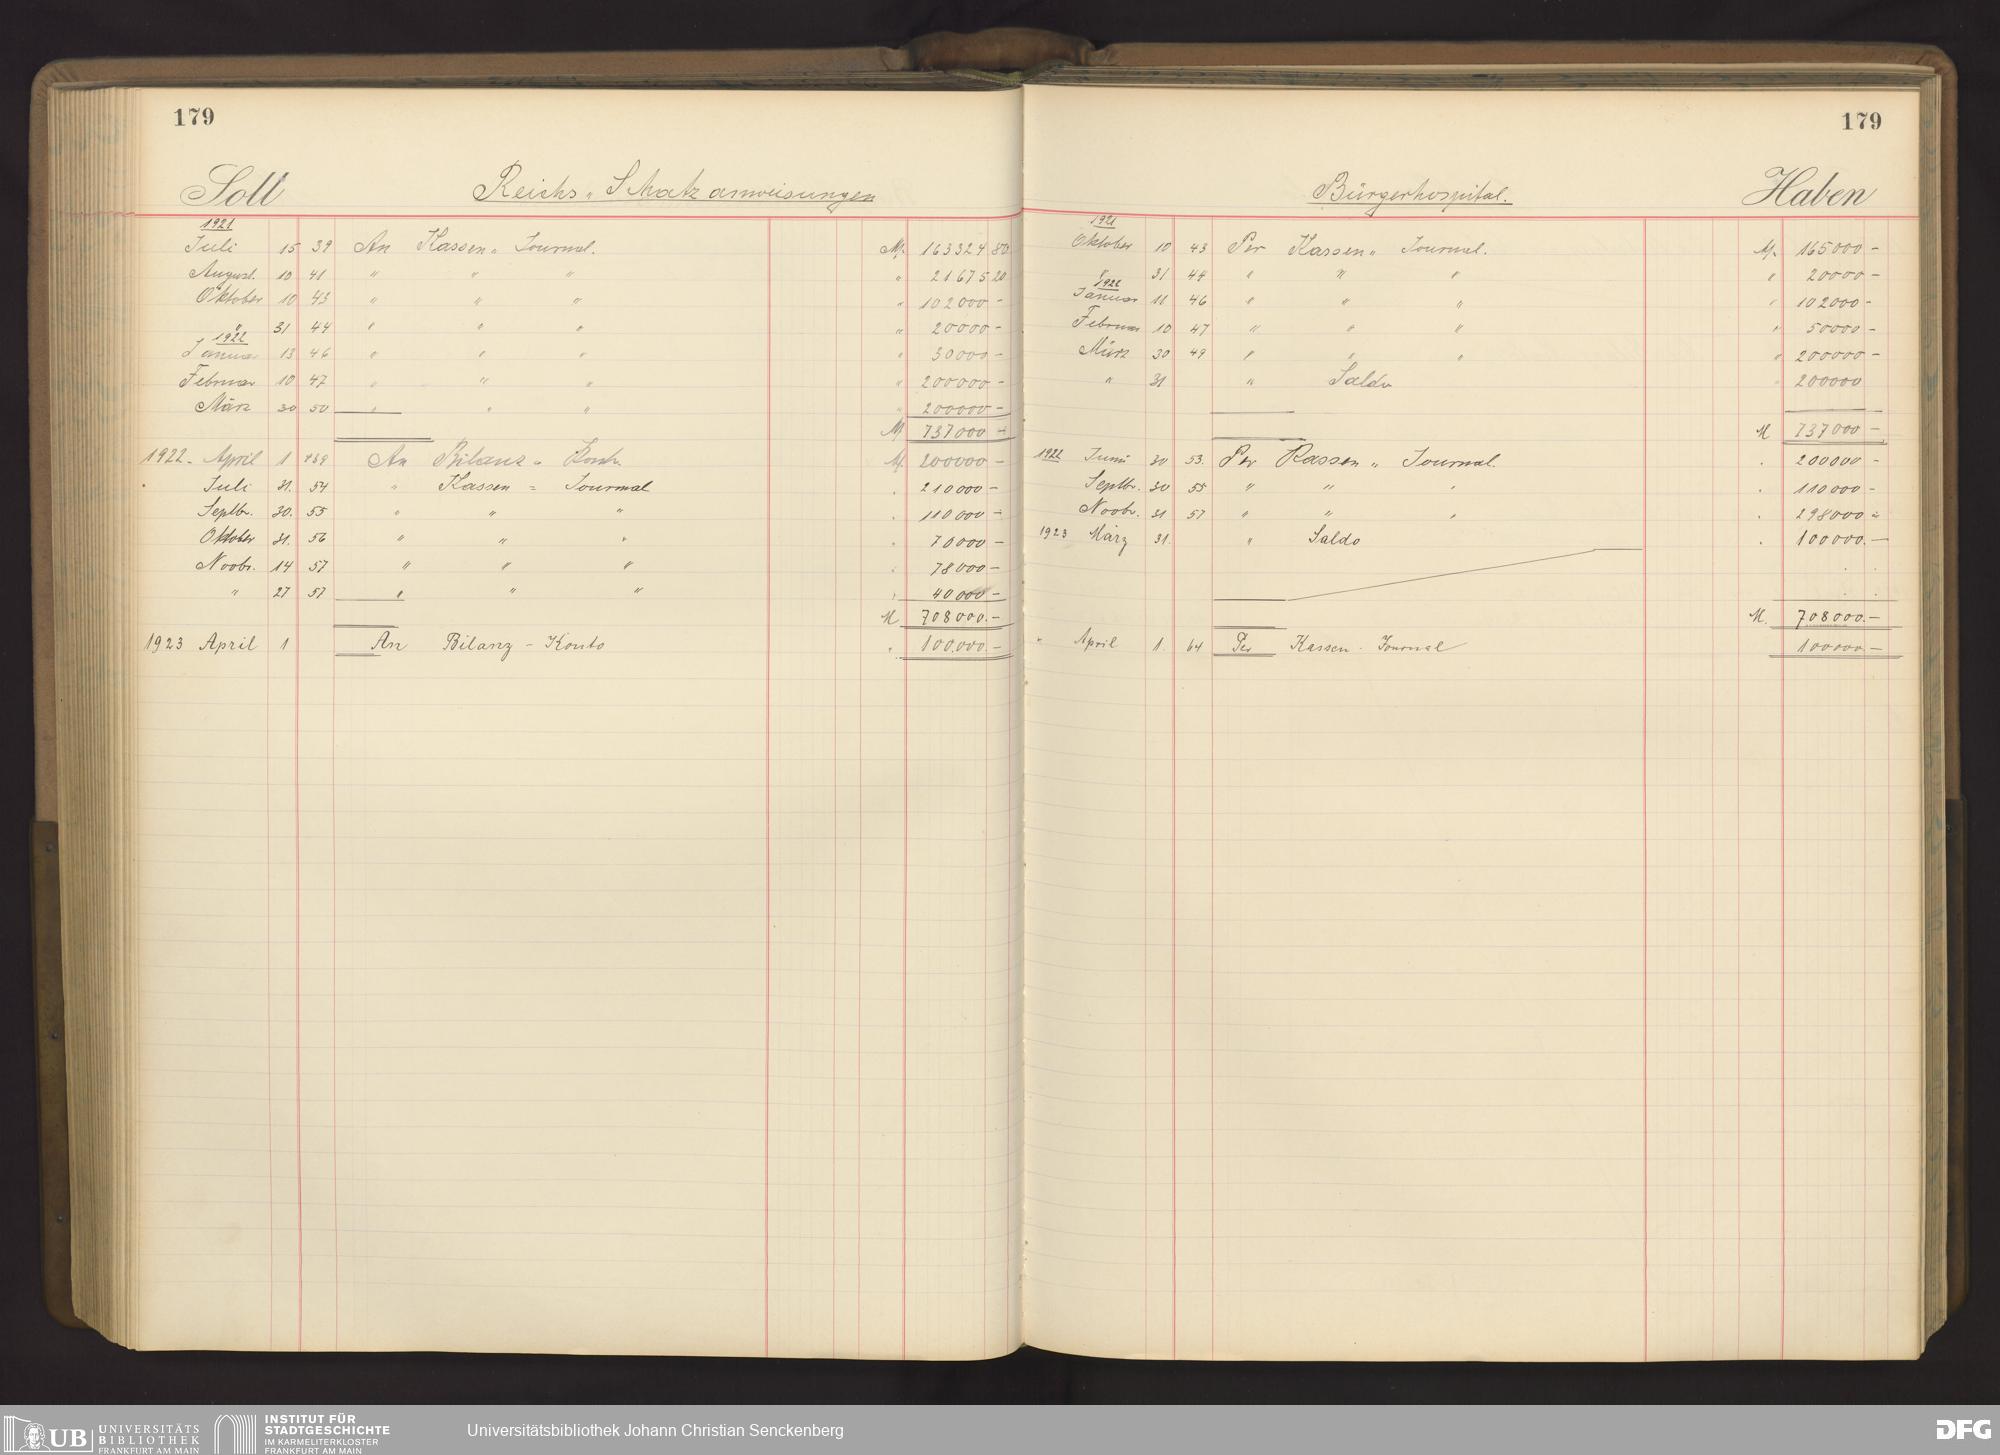 179
Soll Reichs „ Schatzanweisungen
1921
Juli 15 39 An Kassen „ Journal. M. 163324 80
August 10 41 " " " " 21675 20
Oktober 10 43 " " " " 102000 –
" 31 44 " " " " 20000 –
1922
Januar 13 46 " " " " 30000 –
Februar 10 47 " " " " 200000 –
März 30 50 " " " " 200000 –
M 737000 –
1922. April 1 An Bilanz „ Konto. M. 200000 –
Juli 31. 54 " Kassen = Journal . 210000 –
Septbr. 30. 55 " " " . 110000 –
Oktober 31. 56 " " " . 70000 –
Novbr. 14 57 " " " . 78000 –
" 27 57 " " " . 40000 –
M 708000. –
1923 April 1 An Bilanz – Konto " 100.000. –
179
Bürgerhospital. Haben
1921
Oktober 10 43 Per Kassen „ Journal. M. 165000 –
" 31 44 " " " " 20000 –
1922
Januar 11 46 " " " " 102000 –
Februar 10 47 " " " " 50000 –
März 30 49 " " " " 200000 –
" 31 " Saldo " 200000
M 737000 –
1922 Juni 30 53. Per Kassen „ Journal. . 200000 –
Septbr. 30 55 " " " . 110000 –
Novbr. 31 57 " " " . 298000 –
1923 März 31. " Saldo . 100000. –
M. 708000. –
" April 1. 64 Per Kassen - Journal 100000. –
UB UNIVERSITÄTS
BIBLIOTHEK
FRANKFURT AM MAIN
INSTITUT FÜR
STADTGESCHICHTE
IM KARMELITERKLOSTER
FRANKFURT AM MAIN
Universitätsbibliothek Johann Christian Senckenberg
DFG